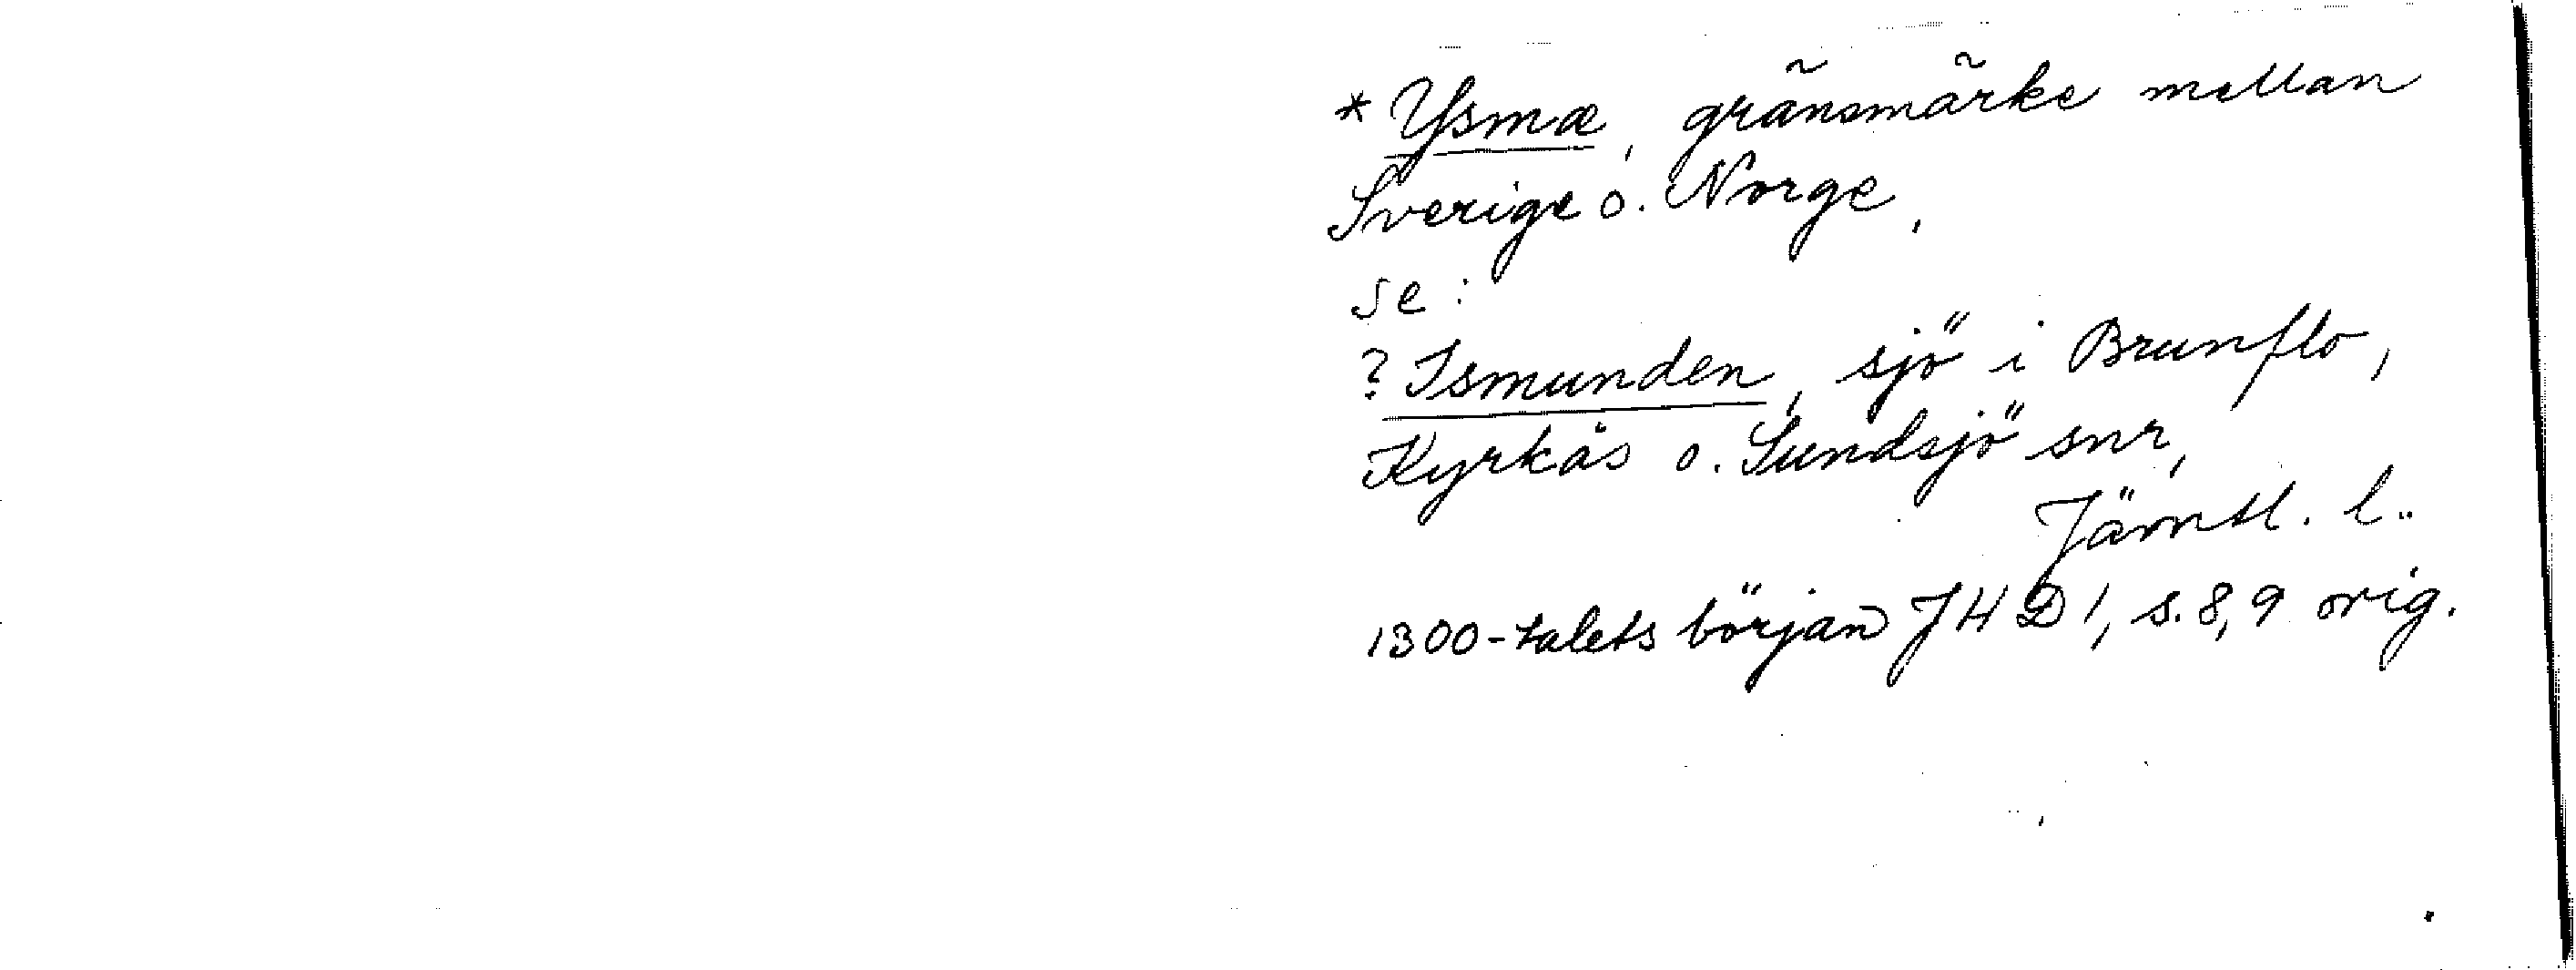 * Ysmæ, gränsmärke mellan
Sverige o. Norge,
se:
? Ismunden, sjö i Brunflo,
Kyrkås o. Sundsjö snr,
Jämtl. l.
1300-talets början JHD 1, s. 8, 9 orig.